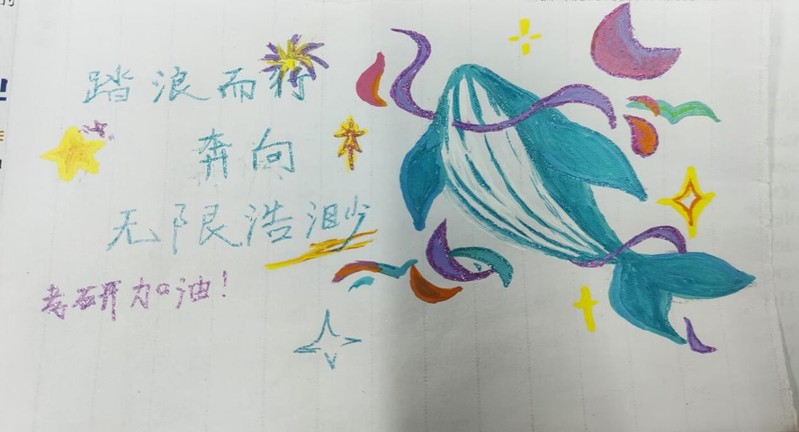 踏浪而行
奔向
无限浩渺
考研加油！